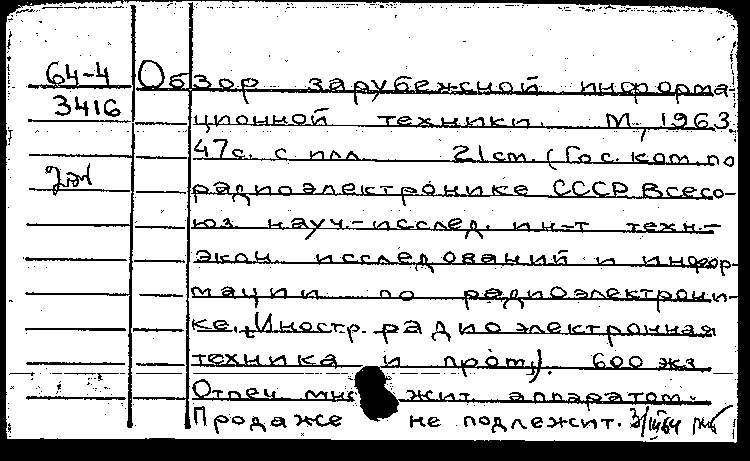 64-4
3416
2эк
Обзор зарубежной информа-
ционной техники. М., 1963.
47с. с илл. 21см. (Гос. ком. по
радиоэлектронике СССР. Всесо-
юз науч.-исслед. ин-т техн.-
экон. исследований и инфор-
мации по радиоэлектрони-
ке. Иностр. радиоэлектронная
техника и пром.). 600 экз.
Отпеч. мно жит. аппаратом.
Продаже не подлежит.